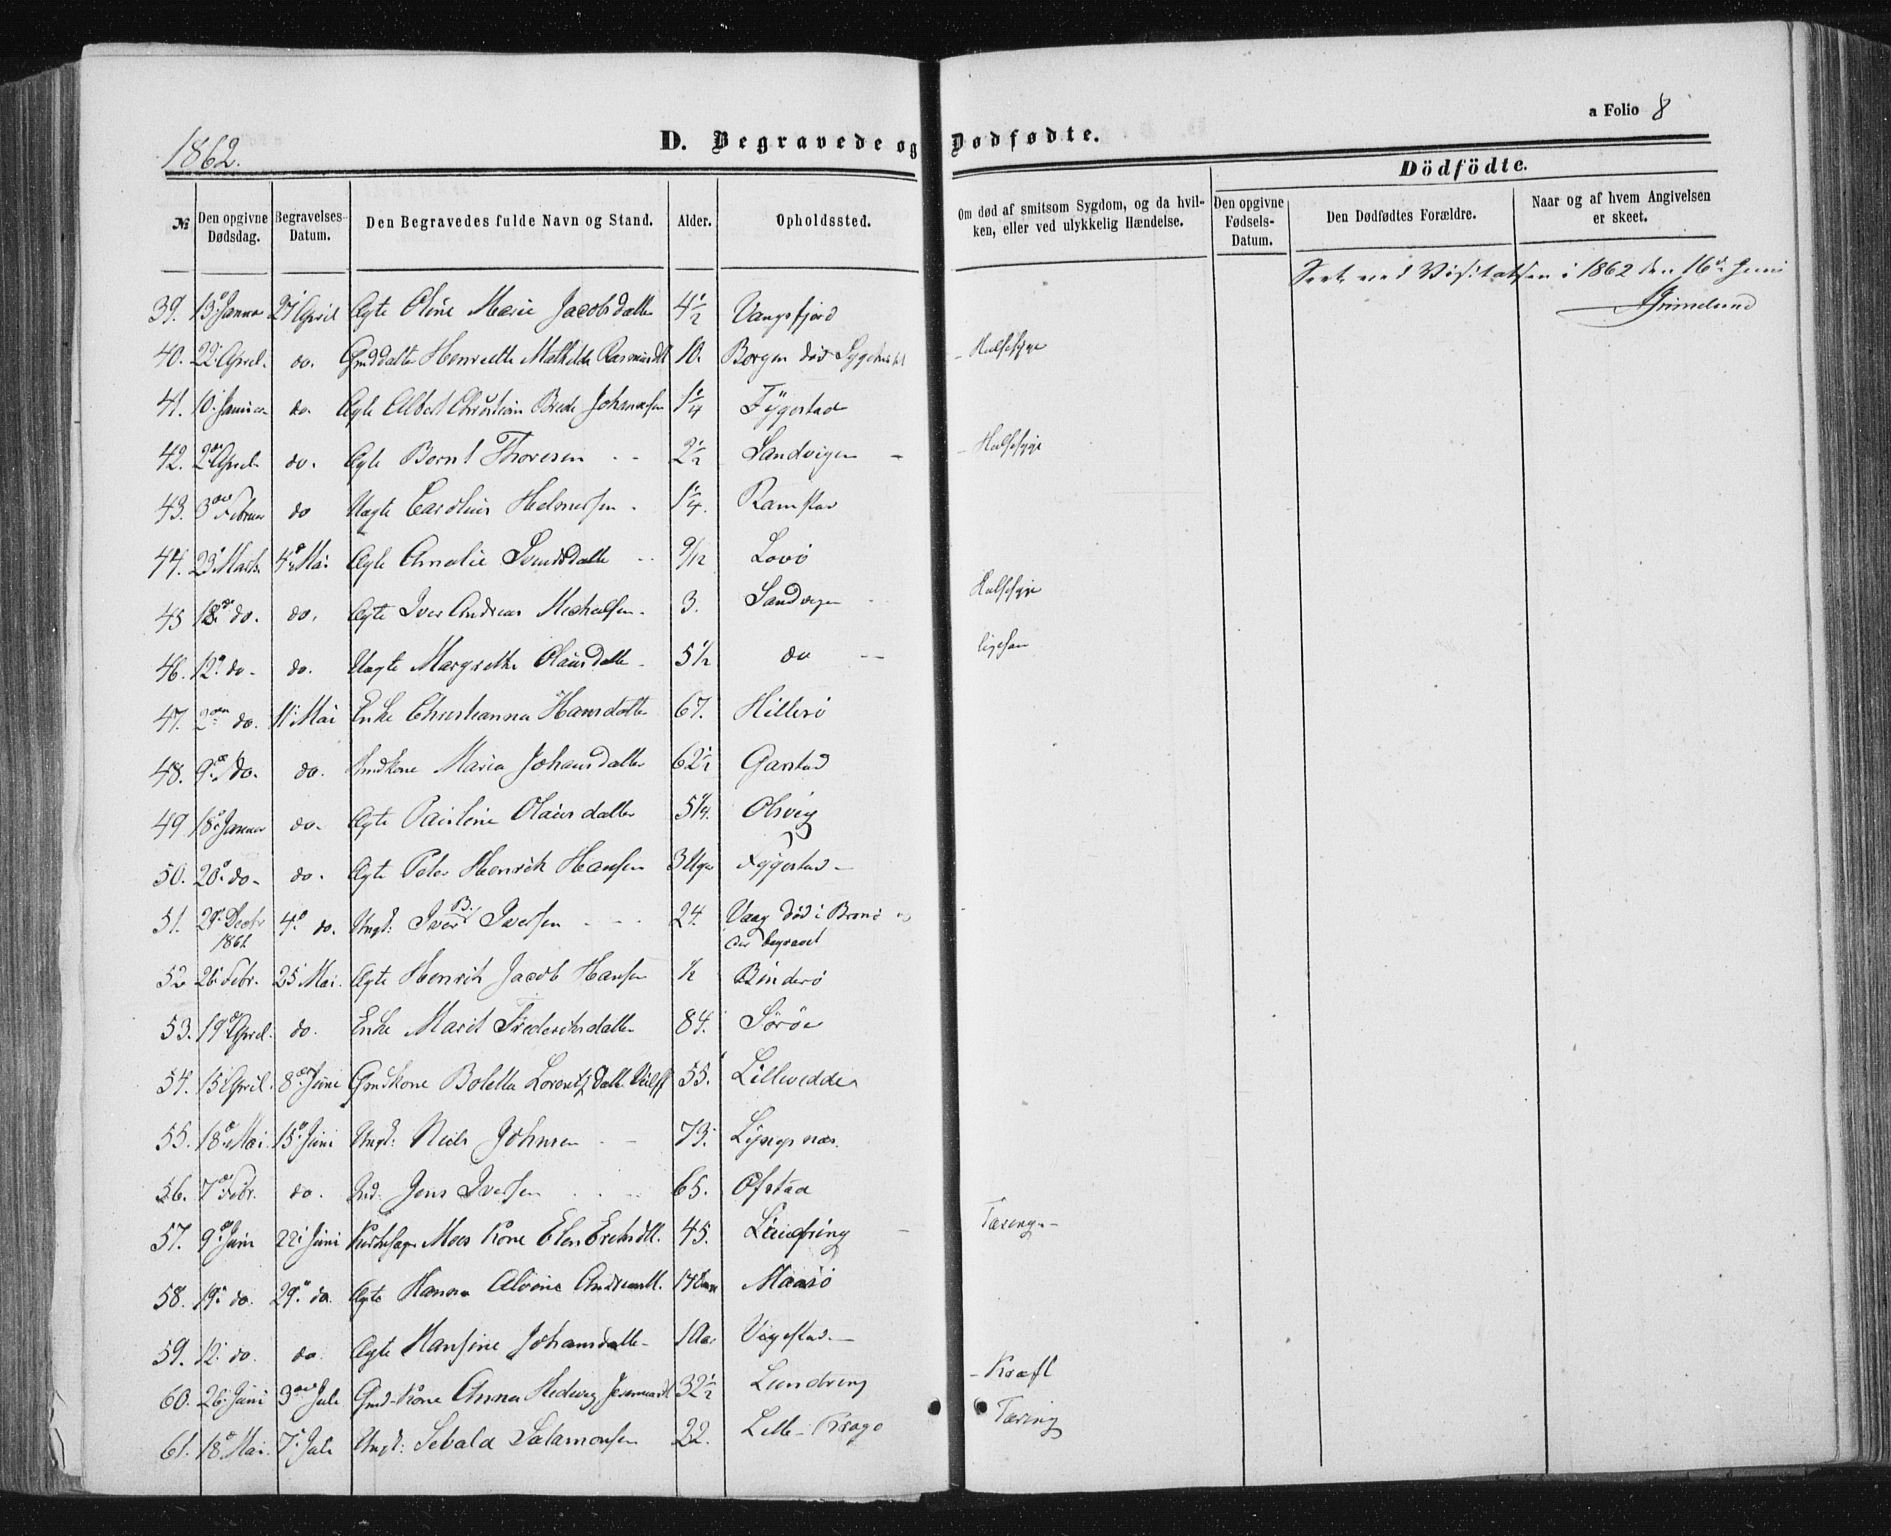 1862.
D. Begravede og Dødfødte.
a Folio 8
Dödfödte.
№ Den opgivne Dødsdag. Begravelses-Datum. Den Begravedes fulde Navn og Stand. Alder. Opholdssted. Om død af smitsom Sygdom, og da hvilken, eller ved ulykkelig Hændelse. Den opgivne Fødsels-Datum. Den Dødfødtes Forældre. Naar og af hvem Angivelsen er skeet.
Seet ved Visitatsen i 1862 den 16de Juni
Grimelund
39. 13de Januar 27 April Ægte Oline Marie Jacobsdatter 4 1/2 Vangsfjord
40. 22 April do. Gmd datter Henriette Mathilde Rasmusdt 10. Borgen død Sygehuset Halssyge
41. 10. Januar do. Ægte Albert Christian Brede Johnsen 1 1/4 Fygestad
42. 2den April do. Ægte Bernt Thoresen 2 1/2 Sandvigen Halssyge
43. 3die Februar do Uægte Carolius Helmersen 1 1/4. Ramstad
44. 23 Marts 4de Mai Ægte Amalie Svendsdatter 9/12 Lovö
45 18de do. do. Ægte Iver Andreas Michelsen 3. Sandvigen Halssyge
46. 12te do. do. Uægte Margrethe Olausdatter 5 1/2 do ligesaa
47. 2den do. 11 Mai Enke Christianna Hansdatter 67. Hillerö
48. 9de do. do. Gmdkone Maria Johansdatter 62 1/2 Garstad
49 18de Januar do. Ægte Pauline Olausdatter 5 1/4. Olsvig
50. 20de do. do. Ægte Peter Henrik Hansen 3 Uger Fyggestad
51. 29de Decbr 1861. 4de do. Ungk: Iver B. Iversen 24. Vaag død i Brønø og der begravet
52 26 Febr. 25 Mai. Ægte Henrik Jacob Hansen 1/2 Binderö
53. 19de April. do. Enke Marit Frederiksdatter 84. Söröe
54. 15 April. 8de Juni Gmdkone Boletta Lorentzdatt. 55. Lillevedde
55. 18de Mai. 15de Juni Ungk: Niels Johnsen 73. Lysognæs.
56. 7de Febr. do. Gmd: Jens Iversen 65. Ofstad
57. 9de Juni 22 Juni Moes Kone Elen Eriksdt. 45. Lundring Tæring
58. 19de do. 29de do. Ægte Hanna Alvine Andreasdt. 14 Dage Maasö
59. 12. do. do. Ægte Hansine Johansdatter 1 Aar Vigestad
60. 26 Juni 3die Juli Gmd-Kone Anna Hedvig 32 1/2 Lundring Kræft
61. 18de Mai. 7de Juli Ungk: Sebald Salamonsen 22. Lille-Kragö Tæring